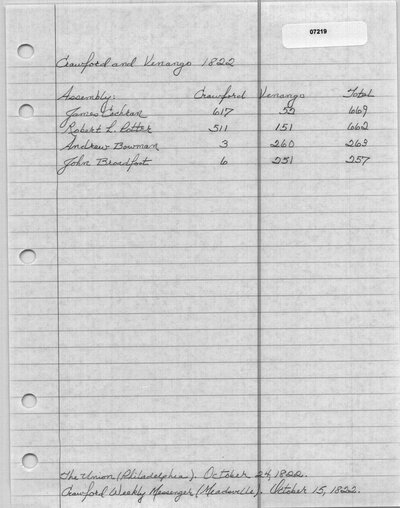 07219
Crawford and Venango 1822
Assembly: Crawford Venango Total
James Cochran 617 52 669
Robert L. Potter 511 151 662
Andrew Bowman 3 260 263
John Broadfoot 6 251 257
The Union (Philadelphia). October 24, 1822.
Crawford Weekly Messenger (Meadville). October 15, 1822.